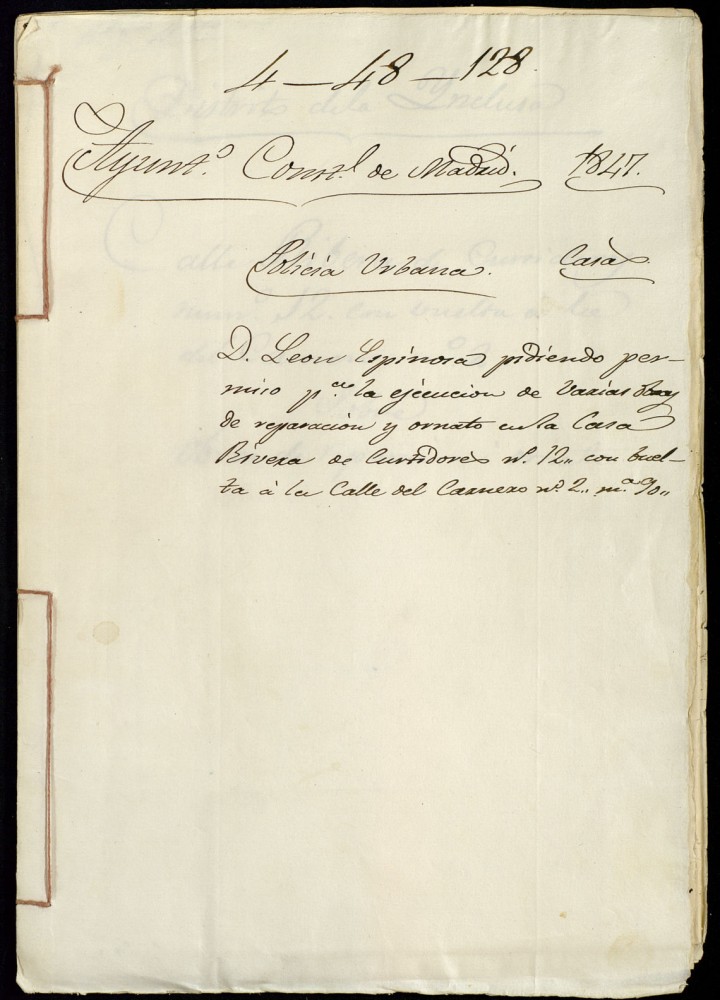 4 - 48 - 128.
Ayunt.º Const.l de Madrid. 1847.
Policia Urbana. Casas.
D. Leon Espinosa pidiendo per-
miso p.ª la ejecucion de varias obras
de reparacion y ornato en la Casa
Rivera de Curtidores nº. 12.. con buel-
ta á la Calle del Carnero nº. 2.. m.ª 90..